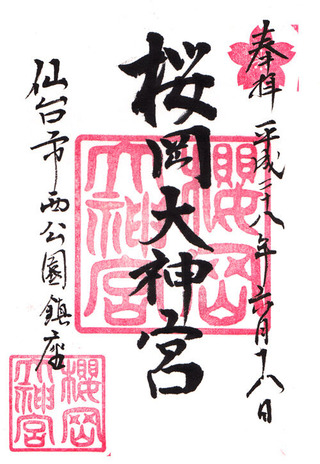 奉拝 平成二十八年六月十八日
桜岡大神宮
櫻岡大神宮
仙台市西公園鎮座
櫻岡大神宮